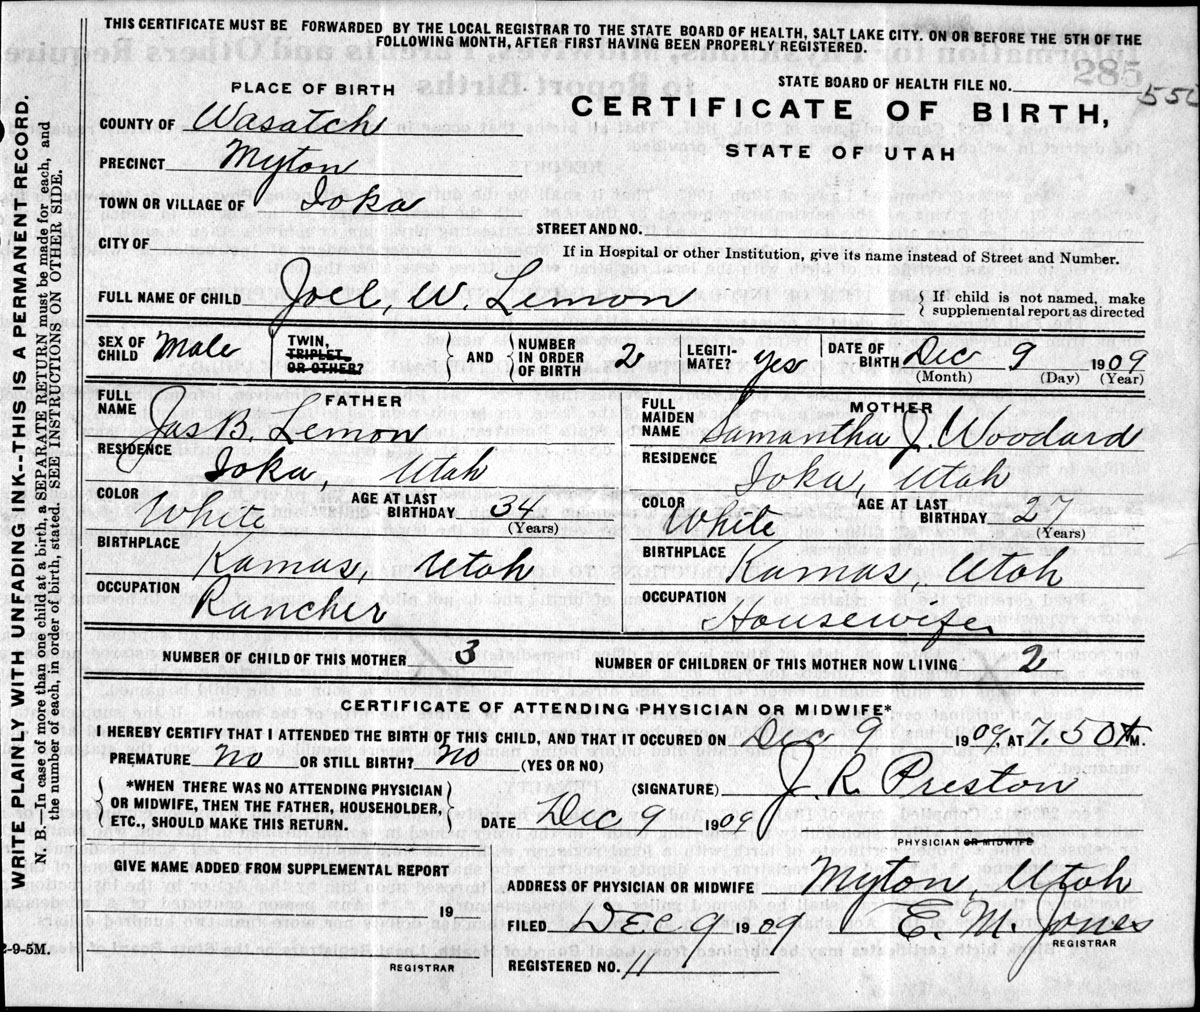 THIS CERTIFICATE MUST BE FORWARDED BY THE LOCAL REGISTRAR TO THE STATE BOARD OF HEALTH, SALT LAKE CITY. ON OR BEFORE THE 5TH OF THE
FOLLOWING MONTH, AFTER FIRST HAVING BEEN PROPERLY REGISTERED.
285
STATE BOARD OF HEALTH FILE NO.
PLACE OF BIRTH
CERTIFICATE OF BIRTH,
STATE OF UTAH
COUNTY OF Wasatch
PRECINCT Myton
TOWN OR VILLAGE OF Ioka
STREET AND NO.
CITY OF
If in Hospital or other Institution, give its name instead of Street and Number.
FULL NAME OF CHILD Joel, W. Lemon
If child is not named, make
supplemental report as directed
SEX OF CHILD Male
TWIN, TRIPLET, OR OTHER?
AND
NUMBER IN ORDER OF BIRTH 2
LEGITIMATE? yes
DATE OF BIRTH Dec 9 1909
(Month) (Day) (Year)
FATHER
FULL NAME Jas B. Lemon
RESIDENCE Ioka, Utah
COLOR White AGE AT LAST BIRTHDAY 34
(Years)
BIRTHPLACE Kamas, Utah
OCCUPATION Rancher
MOTHER
FULL MAIDEN NAME Samantha J. Woodard
RESIDENCE Ioka, Utah
COLOR White AGE AT LAST BIRTHDAY 27
(Years)
BIRTHPLACE Kamas, Utah
OCCUPATION Housewife
NUMBER OF CHILD OF THIS MOTHER 3 NUMBER OF CHILDREN OF THIS MOTHER NOW LIVING 2
CERTIFICATE OF ATTENDING PHYSICIAN OR MIDWIFE*
I HEREBY CERTIFY THAT I ATTENDED THE BIRTH OF THIS CHILD, AND THAT IT OCCURRED ON Dec 9 1909, AT 7.50 A M.
PREMATURE no OR STILL BIRTH? no (YES OR NO)
*WHEN THERE WAS NO ATTENDING PHYSICIAN
OR MIDWIFE, THEN THE FATHER, HOUSEHOLDER,
ETC., SHOULD MAKE THIS RETURN.
(SIGNATURE) J. R. Preston
DATE Dec 9 1909
PHYSICIAN OR MIDWIFE
GIVE NAME ADDED FROM SUPPLEMENTAL REPORT
19
REGISTRAR
ADDRESS OF PHYSICIAN OR MIDWIFE Myton Utah
FILED DEC 9 1909 E. M. Jones
REGISTRAR
REGISTERED NO. 11
WRITE PLAINLY WITH UNFADING INK--THIS IS A PERMANENT RECORD.
N. B.—In case of more than one child at a birth, a SEPARATE RETURN must be made for each, and
the number of each, in order of birth, stated. SEE INSTRUCTIONS ON OTHER SIDE.
2-9-5M.